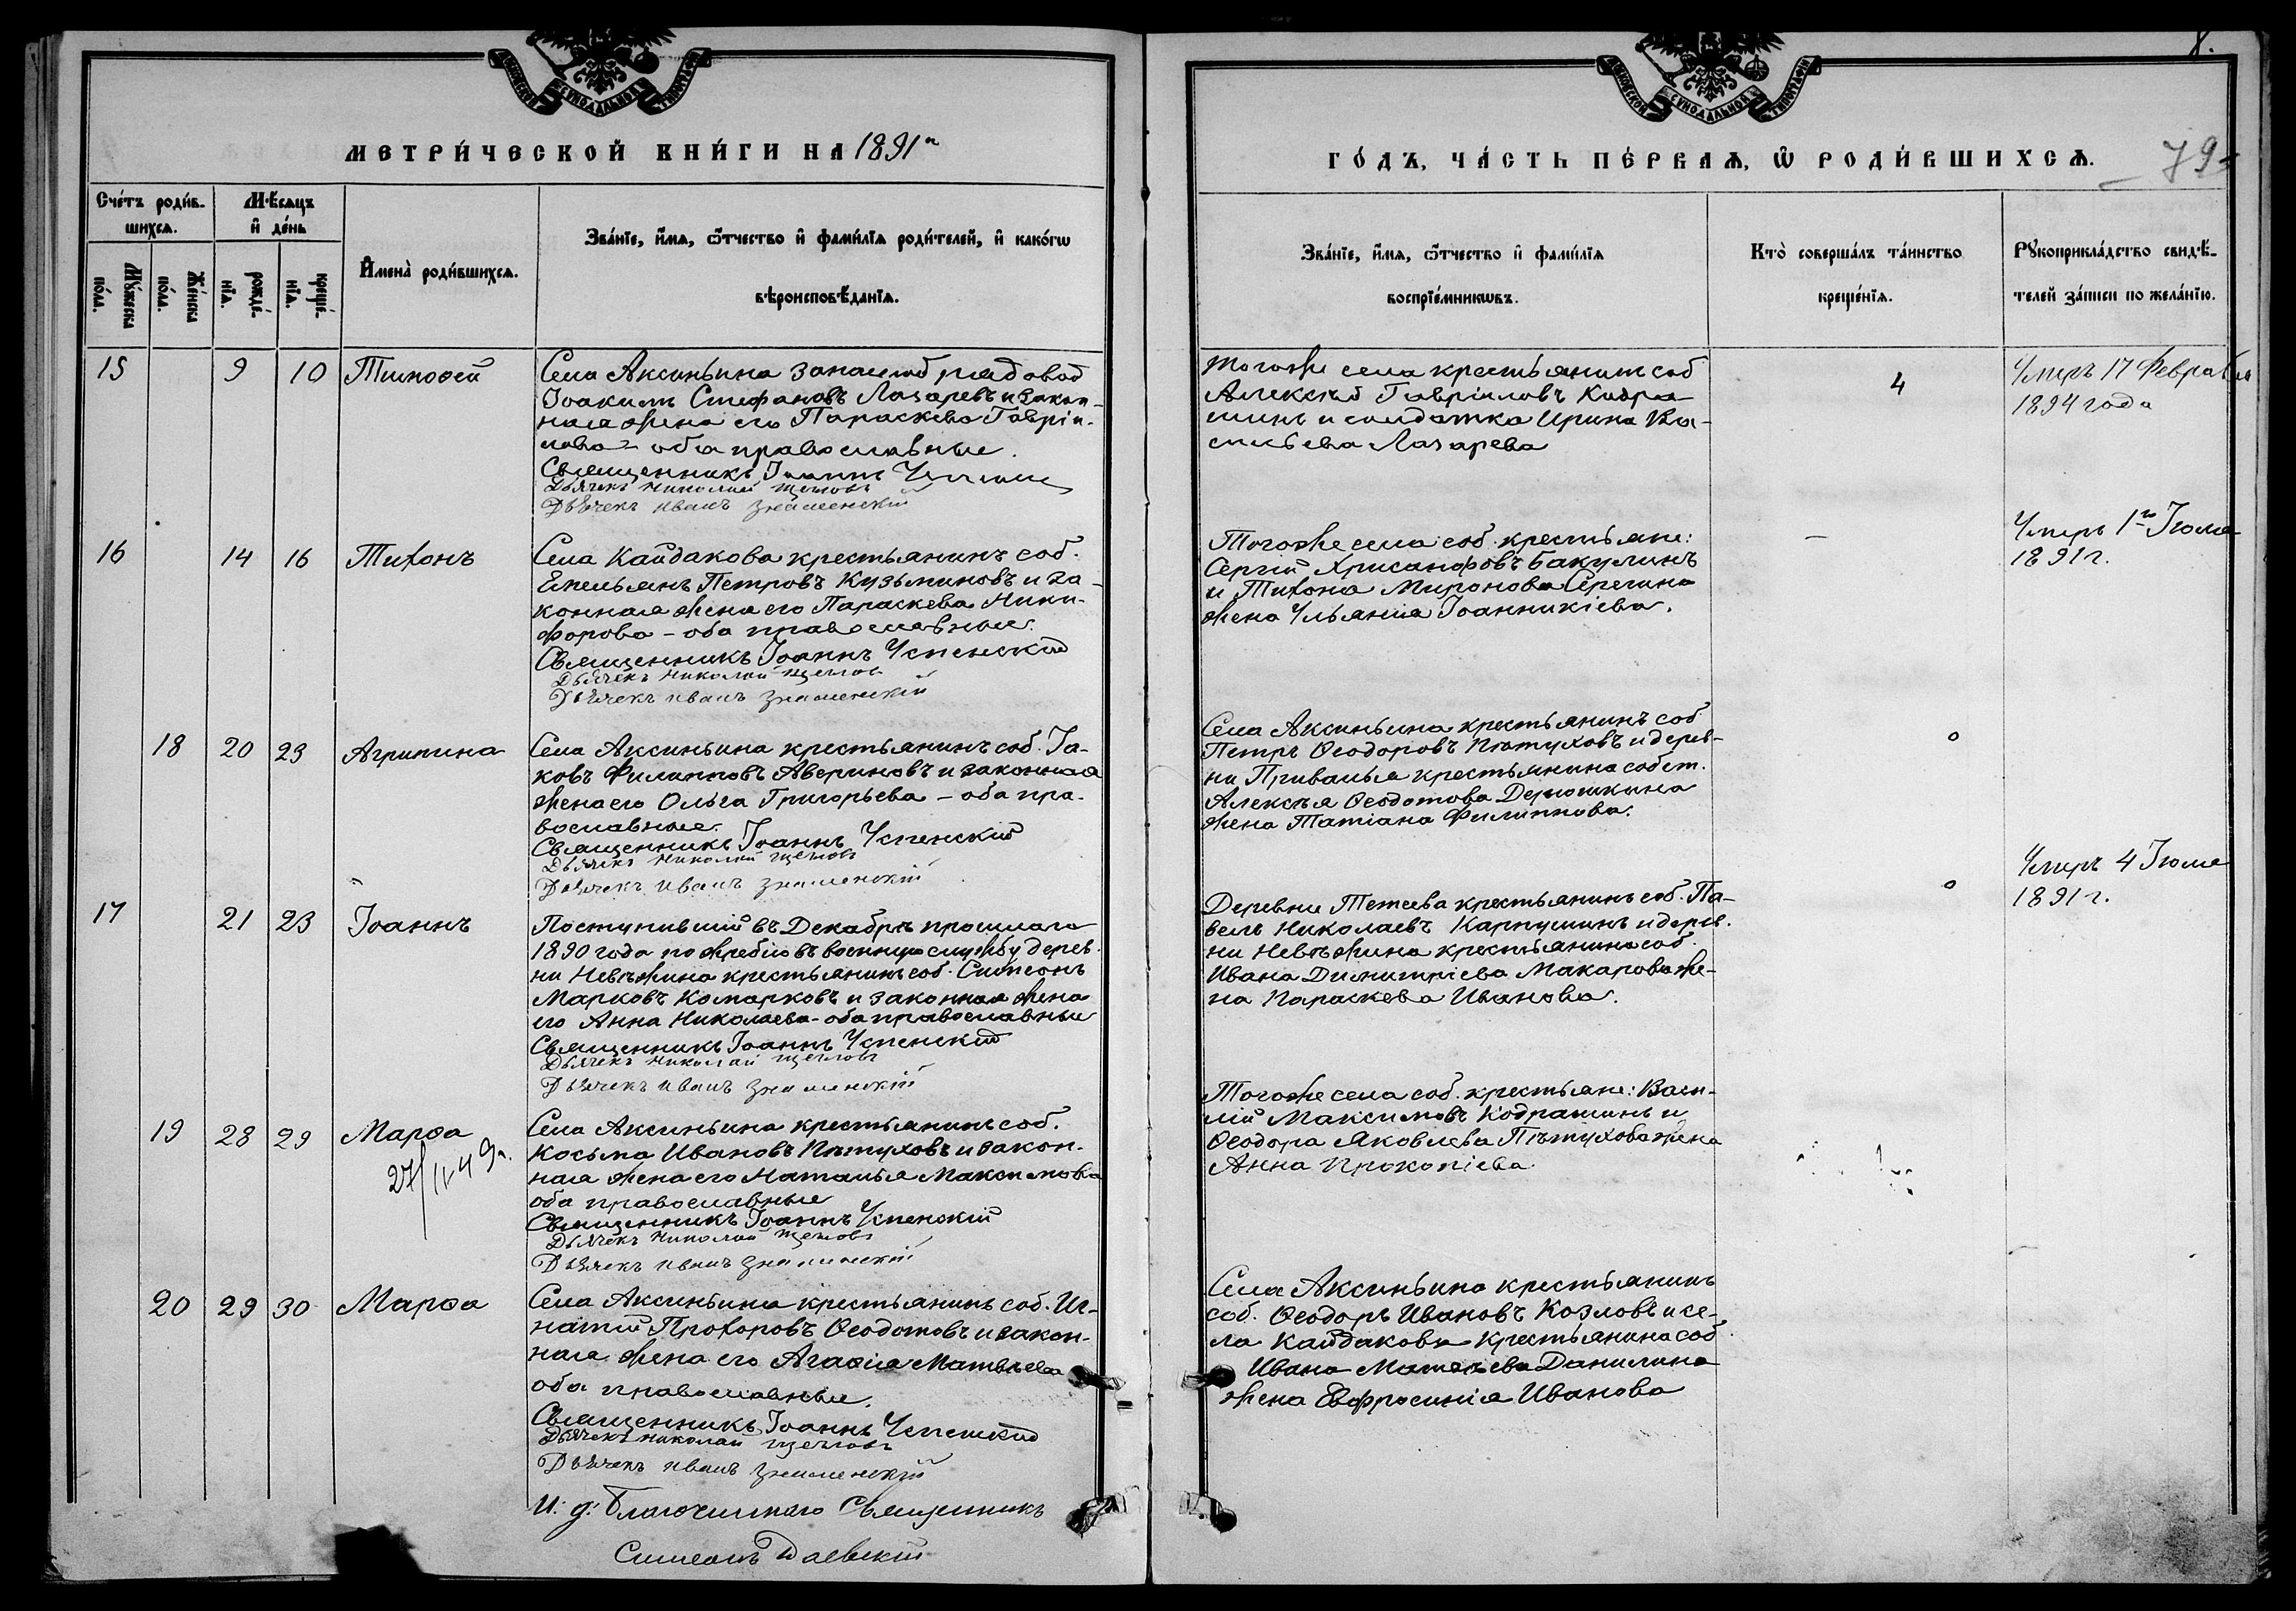 МОСКОВСКОЙ СѴНОДАЛЬНОЙ ТИПОГРАФІИ
МЕТРИ́ЧЕСКОЙ КНИ́ГИ НА 1891 г.
Сче́тъ роди́вшихсѧ.
Мѣ́сѧцъ и҆ де́нь
Мꙋ́жеска по́ла.
Же́нска по́ла.
рожде́нїѧ.
креще́нїѧ.
И҆мена̀ роди́вшихсѧ.
Зва́нїе, и҆́мѧ, ѻ҆́тчество и҆ фами́лїѧ роди́телей, и҆ како́гѡ
вѣроисповѣ́данїѧ.
15 9 10 Тимофей
Села Аксиньина запасной рядовой
Іоакимъ Стефановъ Лазаревъ и закон-
ная жена его Параскева Гавріи-
лова - оба православные.
Священникъ Іоаннъ Успенскій
Дьячекъ Николай Щегловъ
Дьячекъ Иванъ Знаменскій
16 14 16 Тихонъ
Села Кайдакова крестьянинъ соб.
Емельянъ Петровъ Кузьминовъ и за-
конная жена его Параскева Ники-
форова - оба православные.
Священникъ Іоаннъ Успенскій
Дьячекъ Николай Щегловъ
Дьячекъ Иванъ Знаменскій
18 20 23 Агрипина
Села Аксиньина крестьянинъ соб. Іа-
ковъ Филипповъ Авериновъ и законная
жена его Ольга Григорьева - оба пра-
вославные.
Священникъ Іоаннъ Успенскій
Дьячекъ Николай Щегловъ
Дьячекъ Иванъ Знаменскій
17 21 23 Іоаннъ
Поступившій въ Декабрѣ прошлаго
1890 года по жребію въ военную службу дерев-
ни Невѣжина крестьянинъ соб. Симеонъ
Марковъ Комарковъ и законная жена
его Анна Николаева - оба православные
Священникъ Іоаннъ Успенскій
Дьячекъ Николай Щегловъ
Дьячекъ Иванъ Знаменскій
19 28 29 Марѳа
27/II 49 г.
Села Аксиньина крестьянинъ соб.
Косьма Ивановъ Пѣтуховъ и закон-
ная жена его Наталья Максимова
оба православные
Священникъ Іоаннъ Успенскій
Дьячекъ Николай Щегловъ
Дьячекъ Иванъ Знаменскій
20 29 30 Марѳа
Села Аксиньина крестьянинъ соб. Иг-
натій Прохоровъ Ѳеодотовъ и закон-
ная жена его Агаѳія Матвѣева
оба православные.
Священникъ Іоаннъ Успенскій
Дьячекъ Николай Щегловъ
Дьячекъ Иванъ Знаменскій
И. д. Благочиннаго Священникъ
Симеонъ
8.
МОСКОВСКОЙ СѴНОДАЛЬНОЙ ТИПОГРАФІИ
ГО́ДЪ, ЧА́СТЬ ПЕ́РВАѦ, Ѡ҆ РОДИ́ВШИХСѦ. 79
Зва́нїе, и҆́мѧ, ѻ҆́тчество и҆ фами́лїѧ
воспрїе́мникѡвъ.
Кто̀ соверша́лъ та́инство
креще́нїѧ.
Рꙋкоприкла́дство свидѣ́-
телей за́писи по жела́нїю.
Тогоже села крестьянинъ соб
Алексѣй Гавріиловъ Кодра-
шинъ и солдатка Ирина Ва-
сильева Лазарева
4
Умеръ 17 Февраля
1894 года
Тогоже села соб. крестьяне:
Сергій Хрисанфовъ Бакулинъ
и Тихона Миронова Серегина
жена Ульянія Іоанникіева.
Умеръ 1го Іюля
1891 г.
Села Аксиньина крестьянинъ соб
Петръ Ѳеодоровъ Пѣтуховъ и дерев-
ни Привалья крестьянина собст.
Алексѣя Ѳеодотова Дерюшкина
жена Татіана Филиппова.
Деревни Тетеева крестьянинъ соб. Па-
велъ Николаевъ Карпушинъ и дерев-
ни Невѣжина крестьянина соб.
Ивана Димитріева Макарова же-
на Параскева Иванова.
Умеръ 4 Іюля
1891 г.
Тогоже села соб. крестьяне: Васи-
лій Максимовъ Кодрашинъ и
Ѳеодора Яковлева Пѣтухова жена
Анна Прокопіева.
Села Аксиньина крестьянинъ
соб. Ѳеодоръ Ивановъ Козловъ и се-
ла Кайдакова крестьянина соб.
Ивана Матвѣева Данилина
жена Евфросинія Иванова